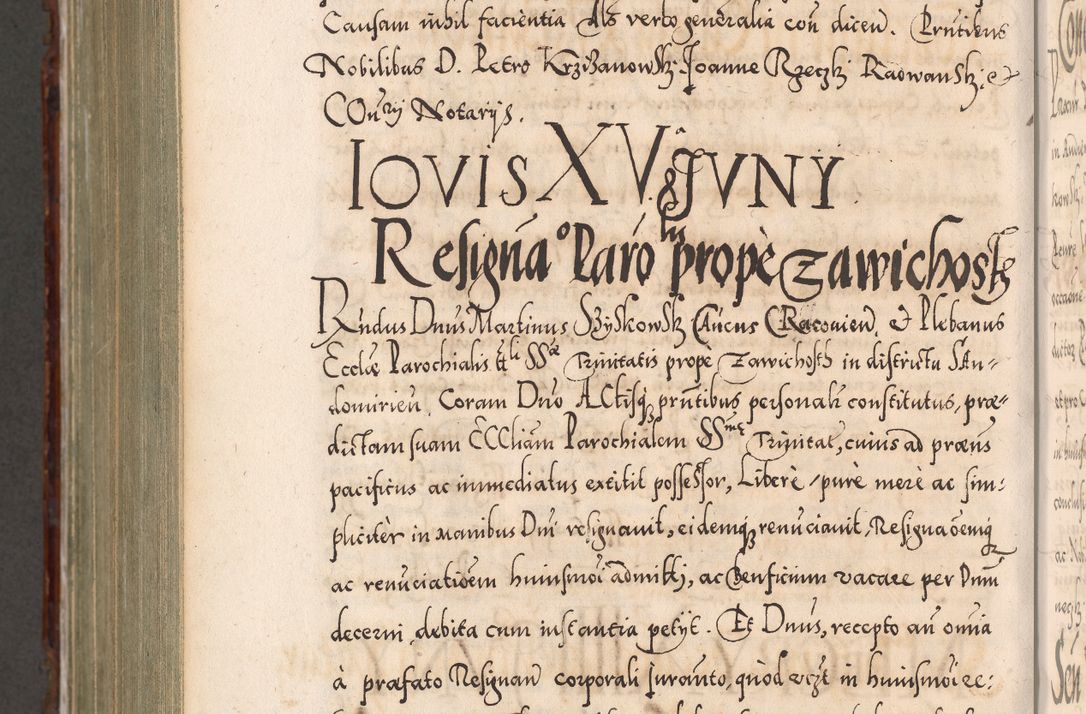 Causam nihil facientia Als verbo generalia con dicen. Prntibus
Nobilibus D. Petro Krziżanowsky. Joanne Rzeczky Radwansky. et
COnry Notarijs.
IOVIS XV. JVNY
Resigna° Paro lis propè Zawichosth
Rndus Dnus Martinus Szyskowsky CAncus CRacovien. Et Plebanus
Eccłæ Parochialis tli SSæ Trinitatis propè Zawichosth in districtu SAn-
domirien. Coram Dno ACtisq prntibus personalr constitutus, præ-
dictam suam ECCliam Parochialem SSmę Trinitat, cuius ad præns
pacificus ac inmediatus extitit possessor, Liberè pùre merè ac sim-
pliciter in manibus Dni resignavit, eidemq renuciavit, Resignaōemq
ac renuciatiōem huiusmōi admitti, ac Benficium vacare per Dnm
decerni debita cum instantia petijt. Et Dnus, recepto an omnia
à præfato Resignan corporali Juramto, quod in huiusmōi re: